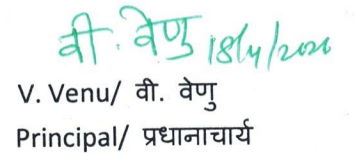 वी. वेणु 18/4/2020
V. Venu/ वी. वेणु
Principal/ प्रधानाचार्य